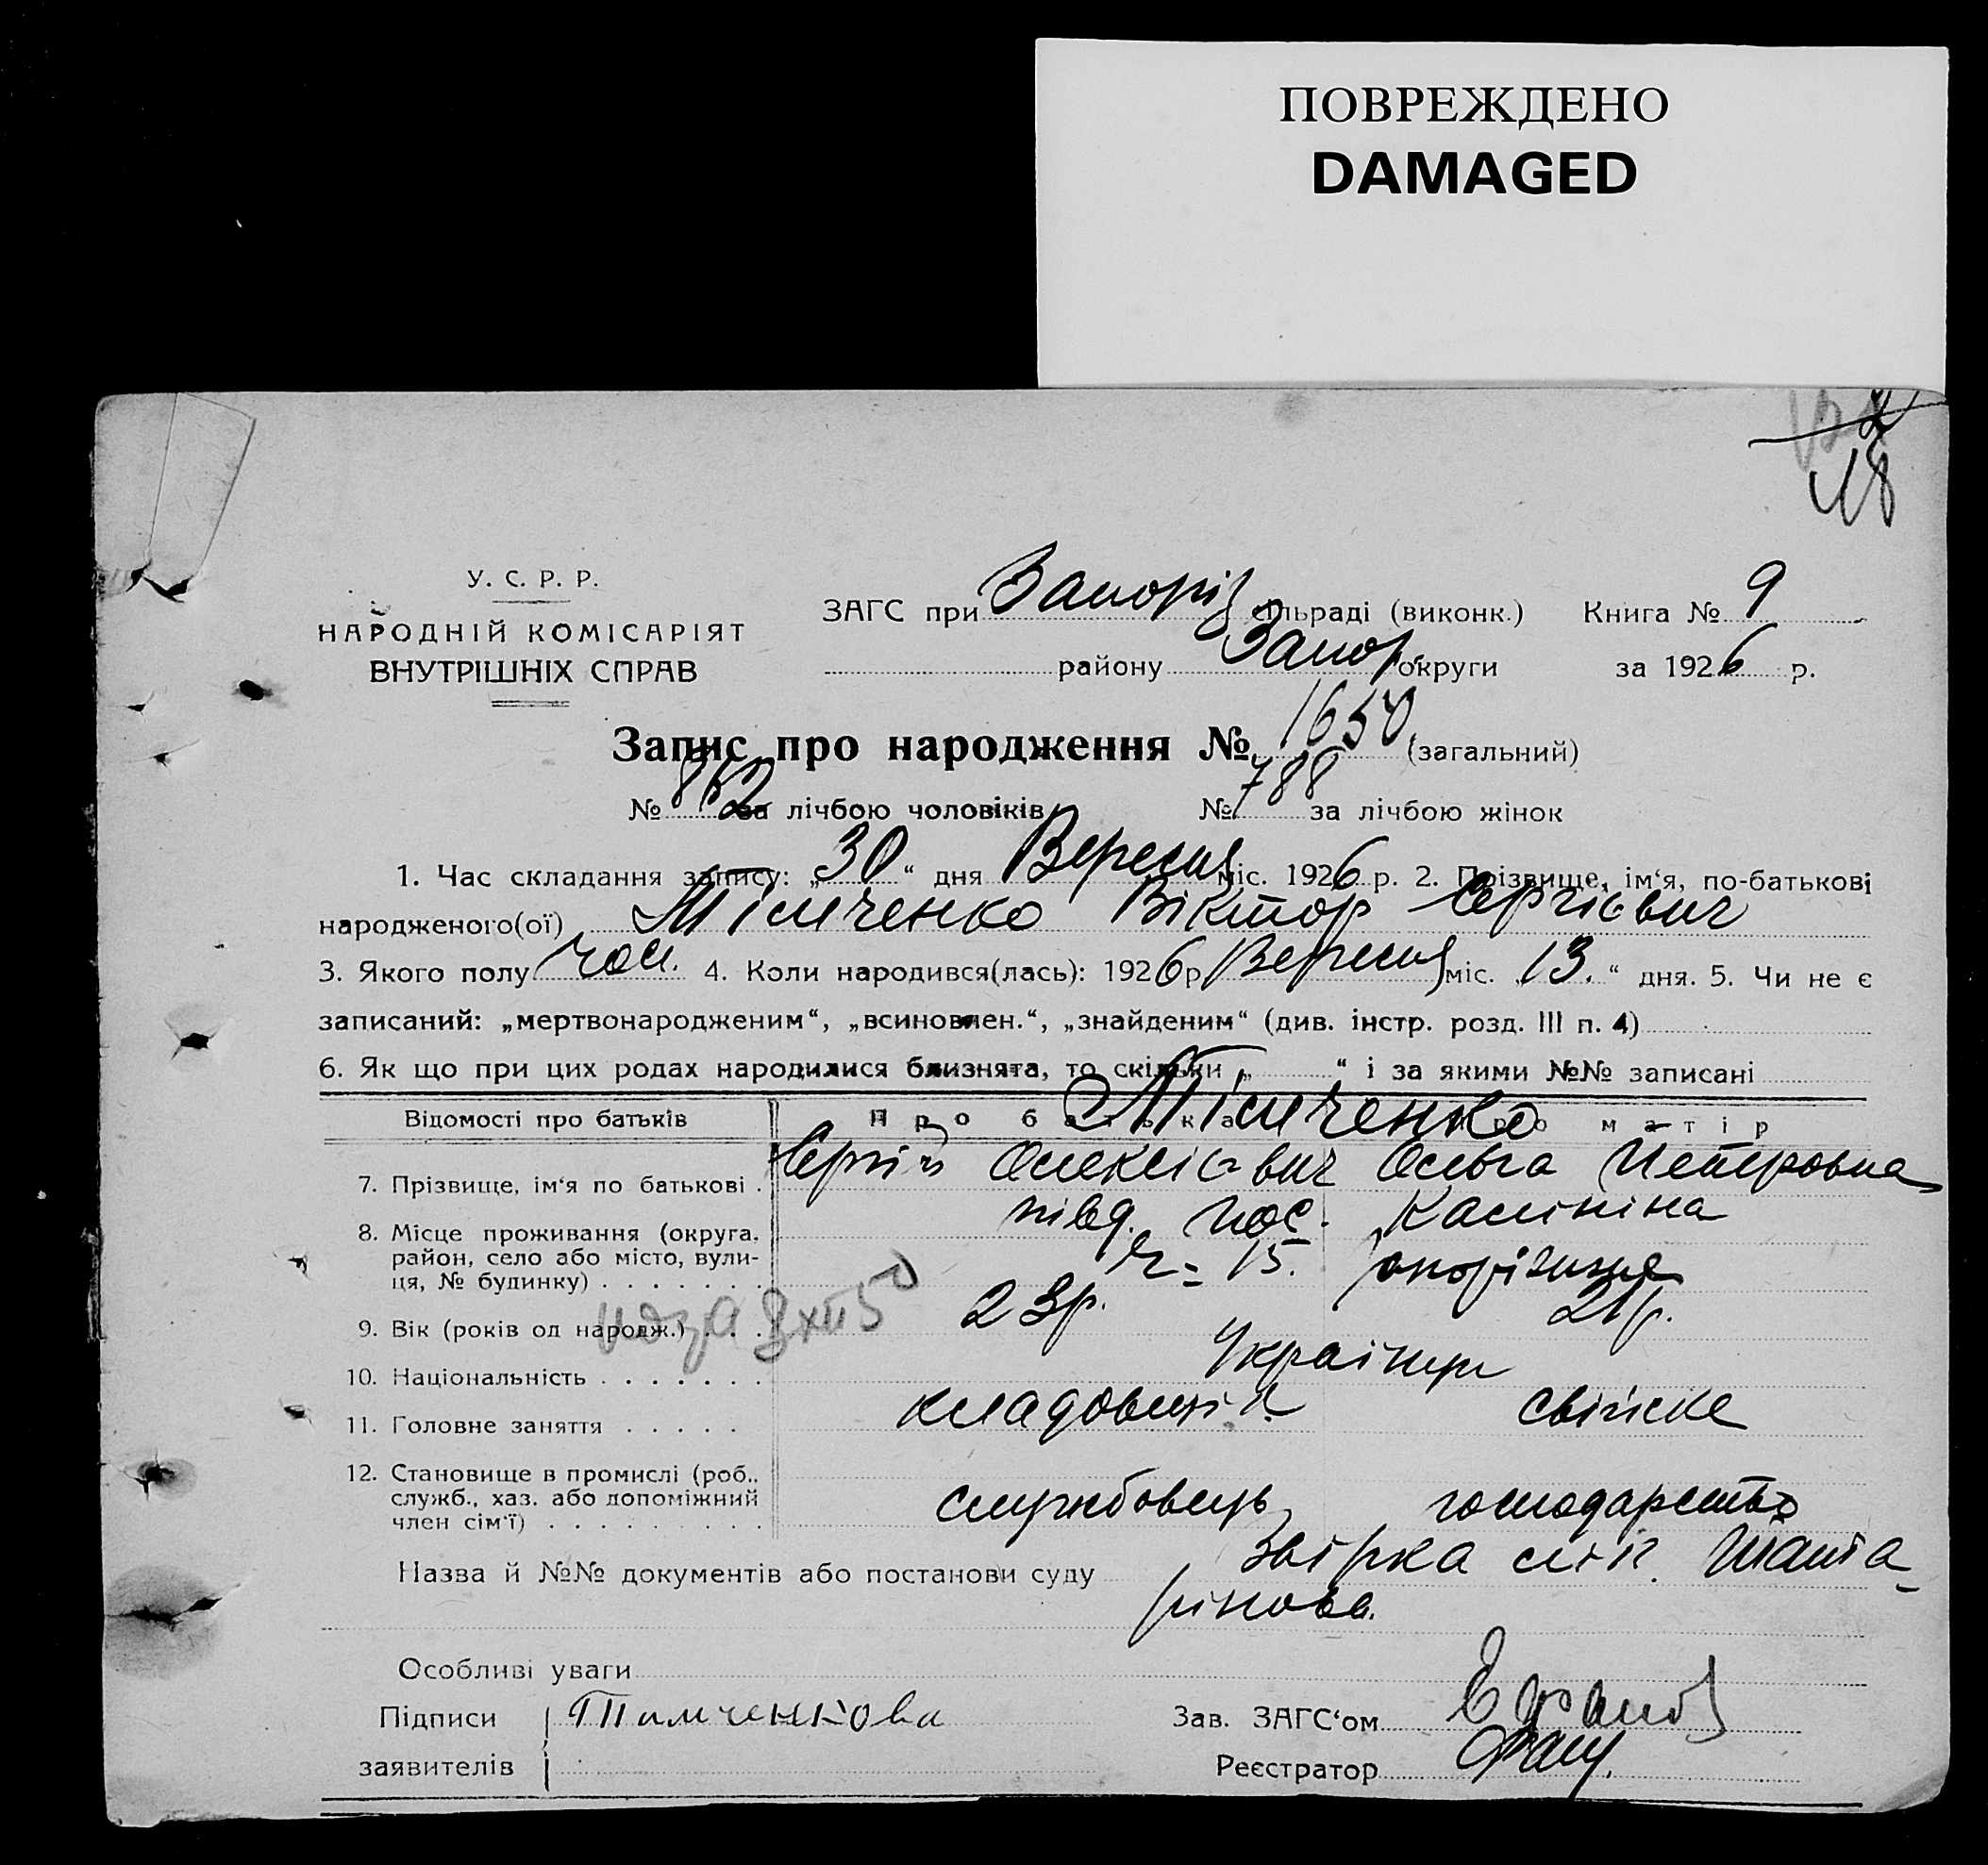 ПОВРЕЖДЕНО
DAMAGED
18
У. С. Р. Р.
НАРОДНІЙ КОМІСАРІЯТ
ВНУТРІШНІХ СПРАВ
ЗАГС при Запоріз сільраді (виконк.) Книга № 9
району Запор. округи за 1926 р.
Запис про народження № 1650 (загальний)
№ 862 за лічбою чоловіків № 788 за лічбою жінок
1. Час складання запису: „30“ дня Вересня міс. 1926 р. 2. Прізвище, ім‘я, по-батькові
народженого(ої) Тімченко Віктор Сергієвич
3. Якого полу чол. 4. Коли народився(лась): 1926 р. Вересня міс. „13.“ дня. 5. Чи не є
записаний: „мертвонародженим“, „всиновлен.“, „знайденим“ (див. інстр. розд. III п. 4)
6. Як що при цих родах народилися близнята, то скільки „ “ і за якими №№ записані
Відомості про батьків Про батька Про матір
Тімченко
7. Прізвище, ім‘я по батькові . Сергій Олексієвич Ольга Петровна
8. Місце проживання (округа, район, село або місто, вулиця, № будинку) півд. пос. Калініна
ч= 15.
9. Вік (років од народж.) . . . 23р. 21р.
10. Національність Українци
11. Головне заняття кладовщік свійске
12. Становище в промислі (роб., служб., хаз. або допоміжний член сім‘ї) службовець господарство
Назва й №№ документів або постанови суду Звірка лік. Шата-
рінова.
Особливі уваги
Підписи Тимченкова Зав. ЗАГС‘ом
заявителів Реєстратор